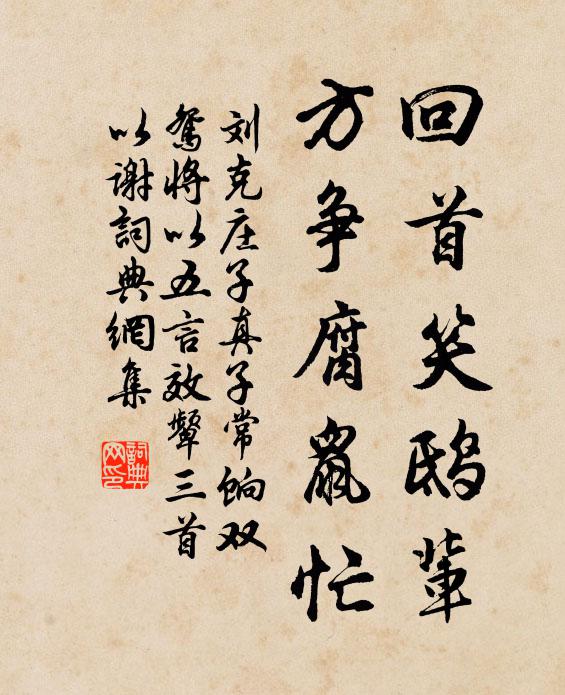 回首笑鴟輩
方争腐鼠忙
刘克庄子真子常饷双
鸳将以五言效颦三首
以谢詞典網集
詞典网印